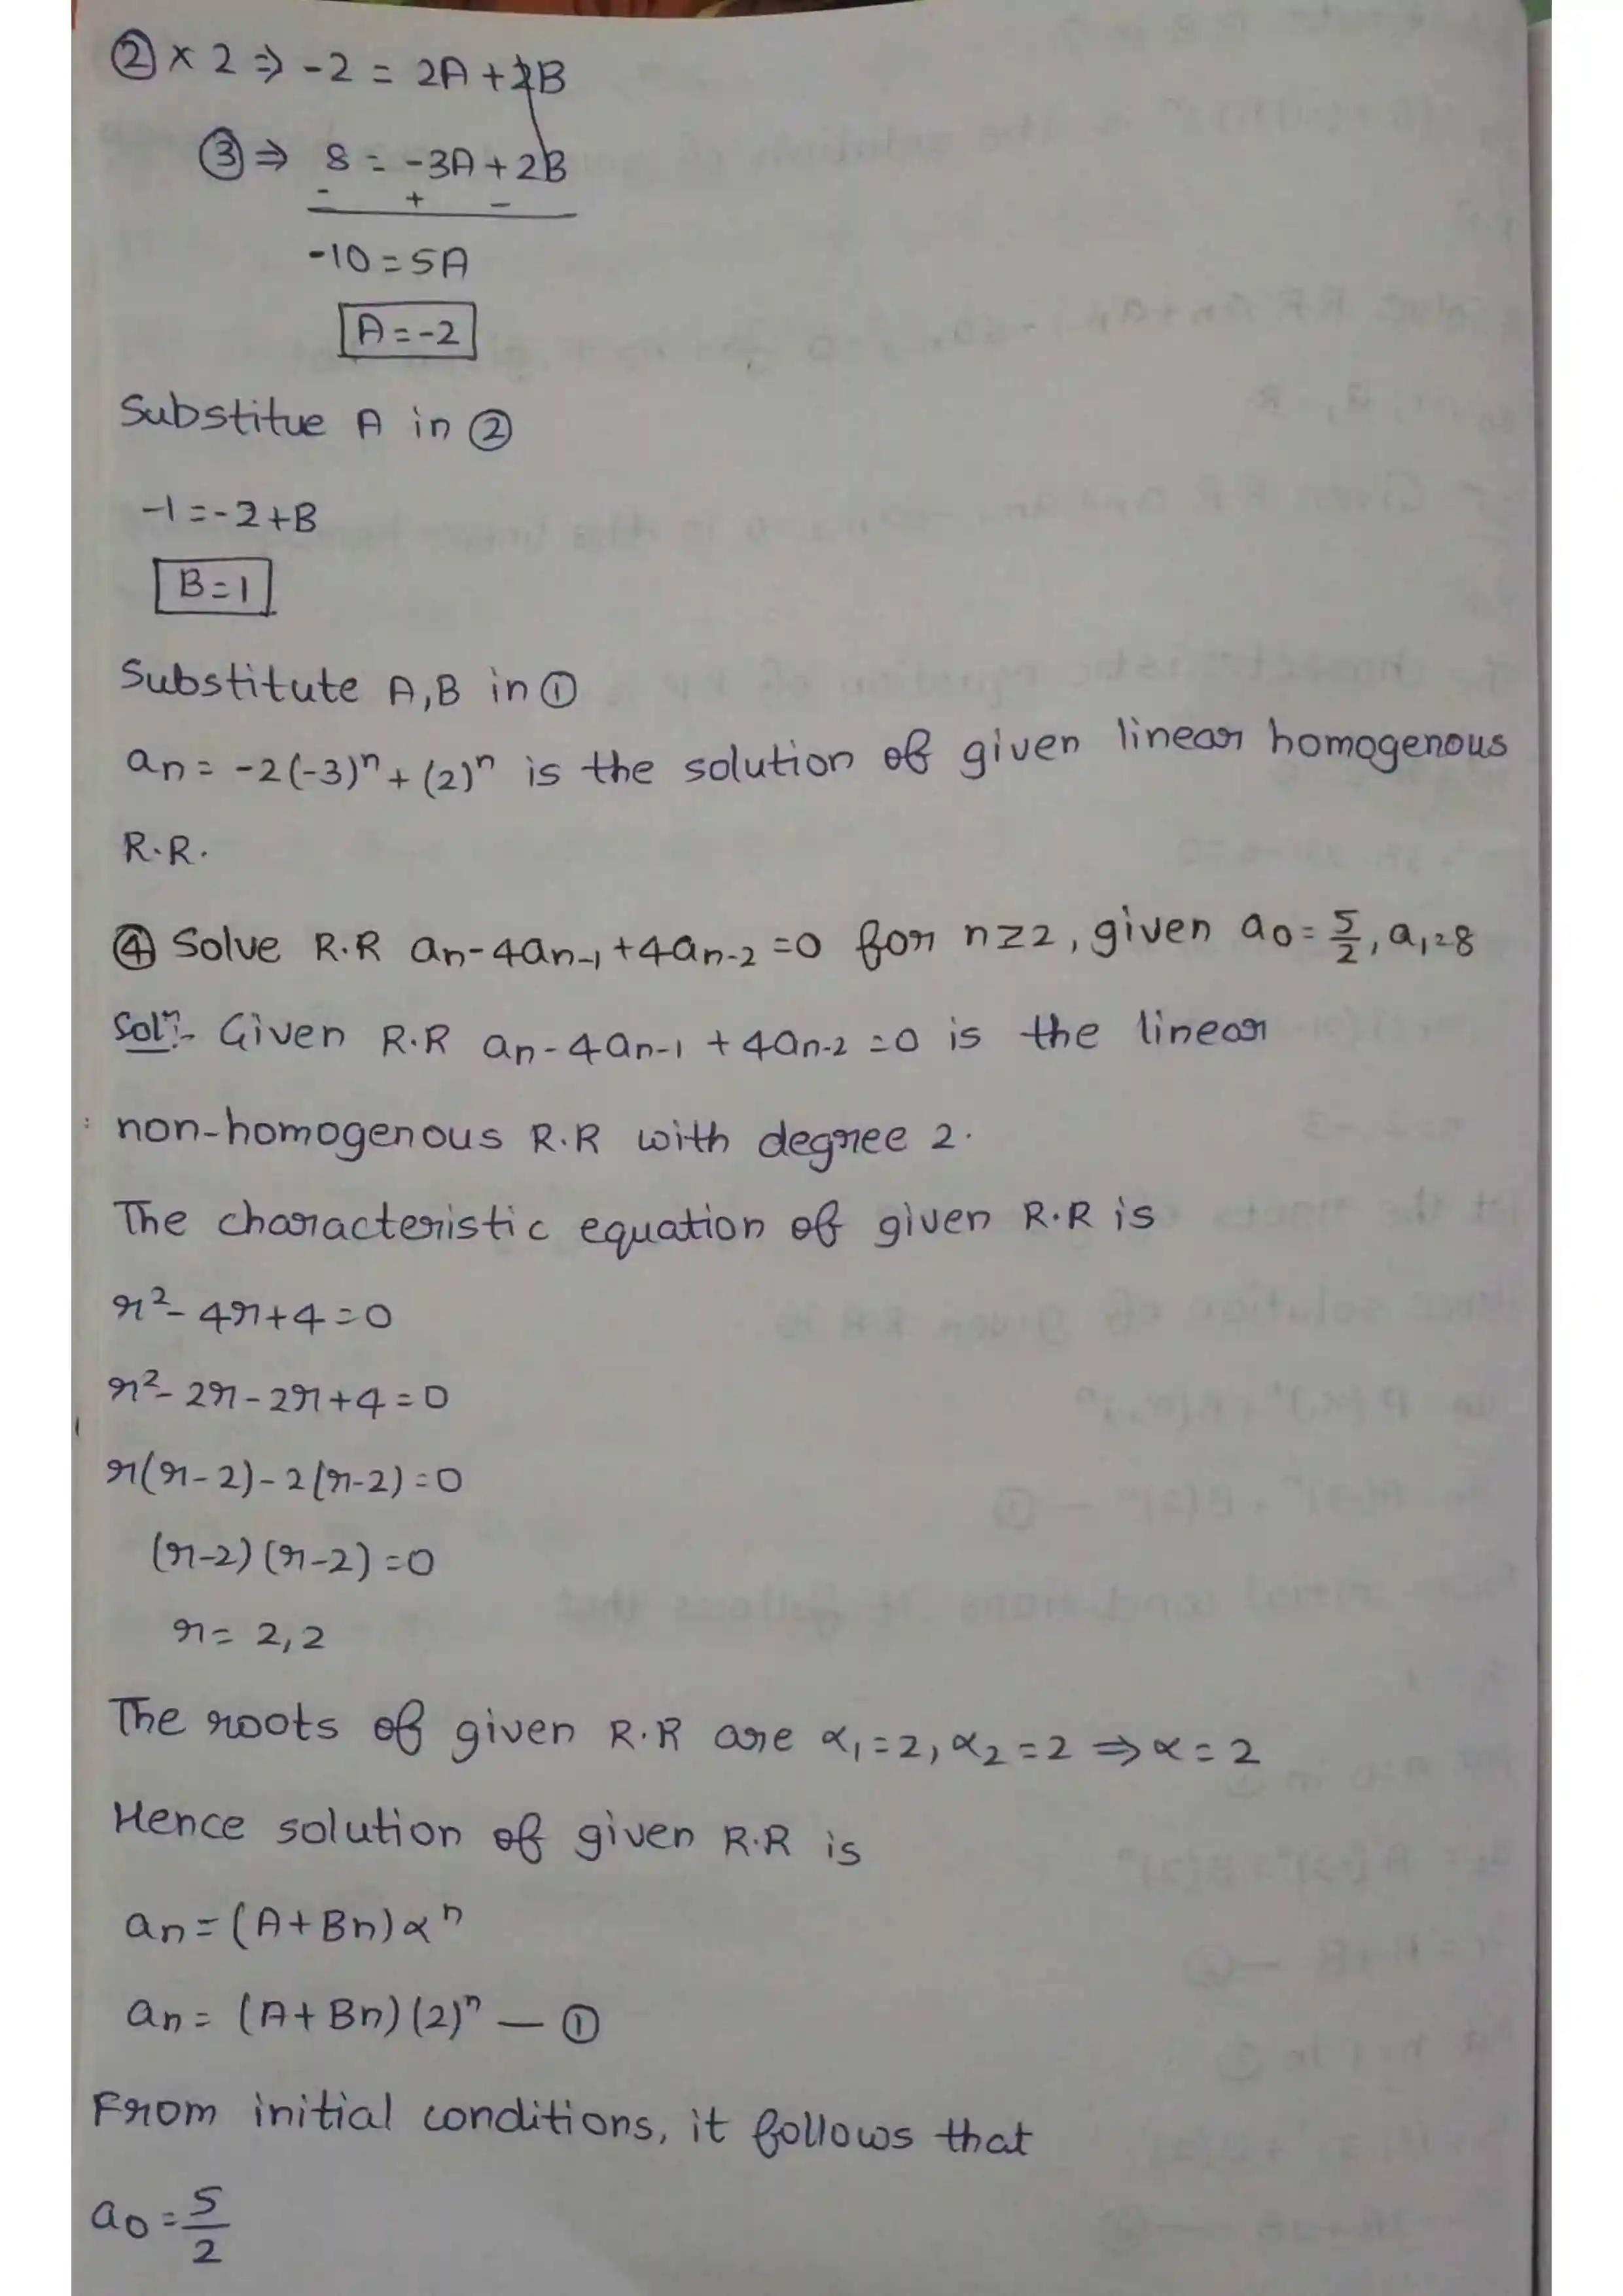 ② × 2 ⇒ -2 = 2A + 2B
③ ⇒ 8 = -3A + 2B
- + -
-10 = 5A
A = -2
Substitue A in ②
-1 = -2 + B
B = 1
Substitute A,B in ①
an = -2(-3)ⁿ + (2)ⁿ is the solution of given linear homogenous
R.R.
④ Solve R.R an - 4an-1 + 4an-2 = 0 for n ≥ 2, given a0 = 5/2, a1 = 8
Solⁿ:- Given R.R an - 4an-1 + 4an-2 = 0 is the linear
non-homogenous R.R with degree 2.
The characteristic equation of given R.R is
r² - 4r + 4 = 0
r² - 2r - 2r + 4 = 0
r(r - 2) - 2(r - 2) = 0
(r - 2)(r - 2) = 0
r = 2, 2
The roots of given R.R are α1 = 2, α2 = 2 ⇒ α = 2
Hence solution of given R.R is
an = (A + Bn) αⁿ
an = (A + Bn)(2)ⁿ — ①
From initial conditions, it follows that
a0 = 5/2